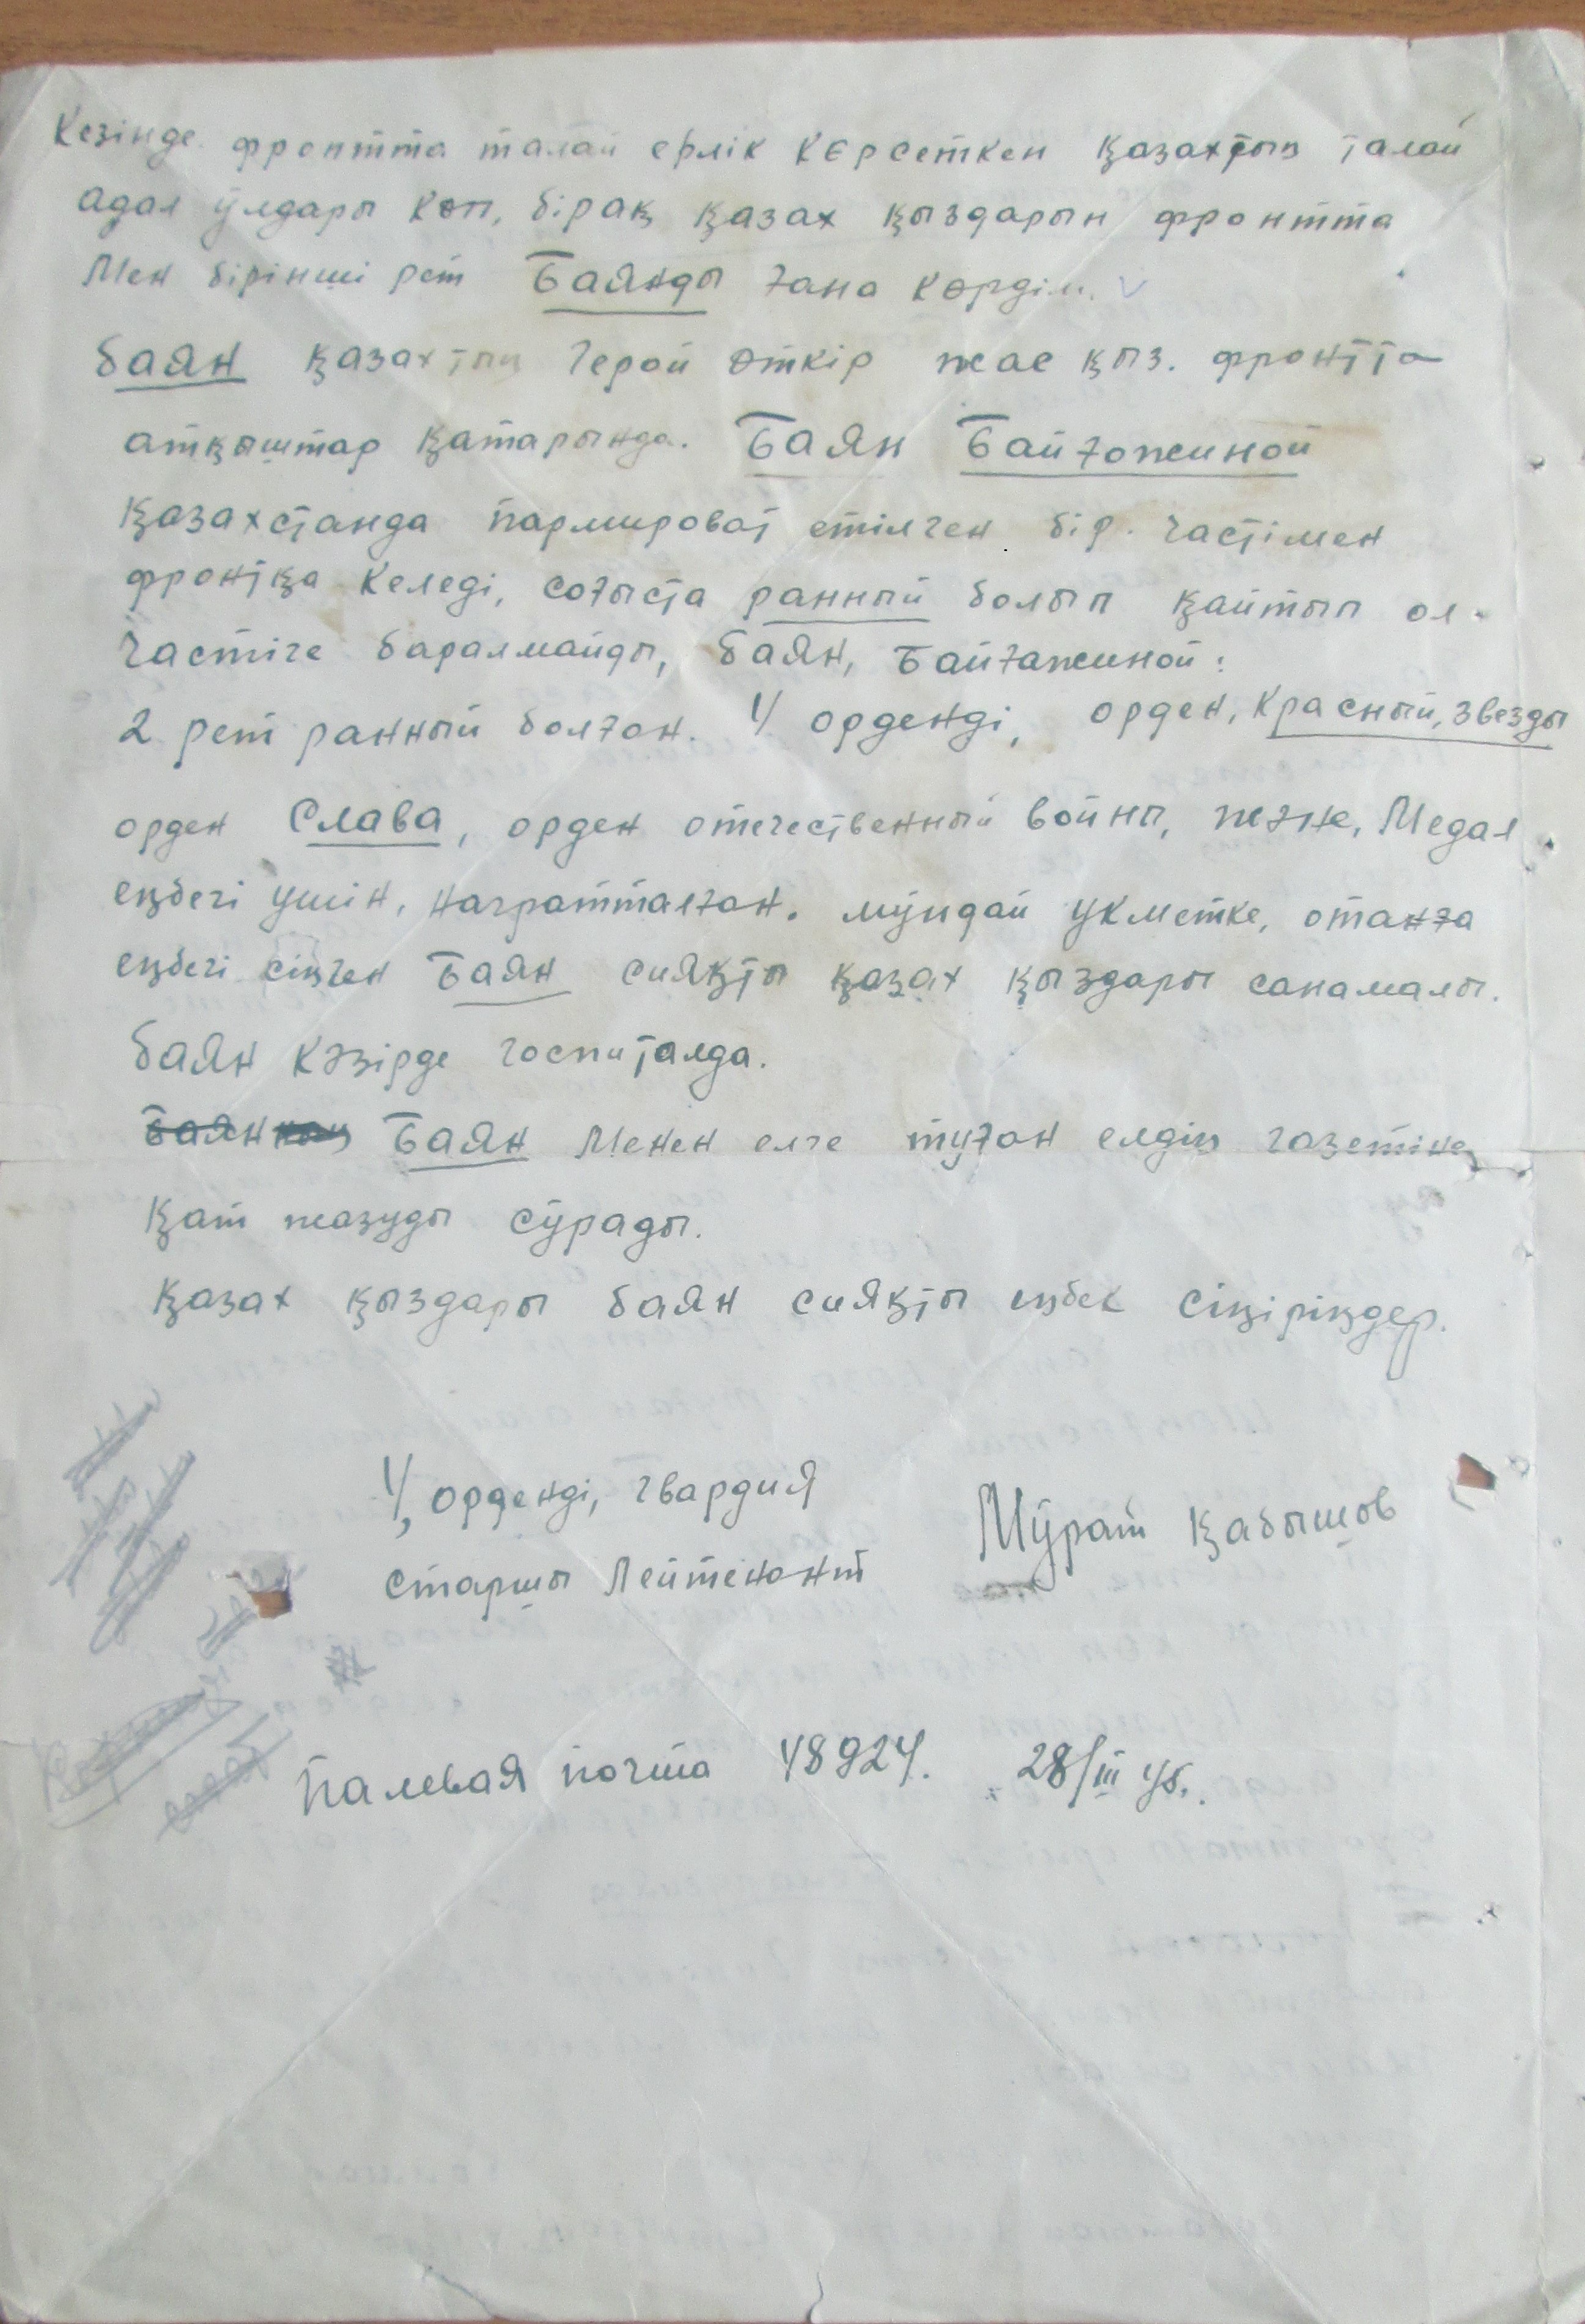 Кезінде фронтта талай ерлік көрсеткен қазахтың талай
адал ұлдары көп, бірақ қазах қыздарын фронтта
Мен бірінші рет Баянды ғана көрдім.
баян қазахтың герой өткір жас қыз. фронтта
атқыштар қатарында. Баян Байғожиной
қазахстанда пармироват етілген бір. частімен
фронтқа келеді, соғыста ранный болып қайтып ол.
частіге баралмайды, Баян, Байғажиной:
2 рет ранный болған. 4 орденді, орден, Красный, звезды
орден Слава, орден отечественный войны, және, Медал
еңбегі үшін, награтталған. мұндай үкметке, отанға
еңбегі сіңген Баян сияқты қазах қыздары санамалы.
Баян кәзірде госпиталда.
Баян Менен елге туған елдің газетіне
қат жазуды сұрады.
қазах қыздары баян сияқты еңбек сіңіріңдер.
4, орденді, гвардия
старшы Лейтенант Мұрат Қабышов
Палевая почта 48924. 28/III 45.